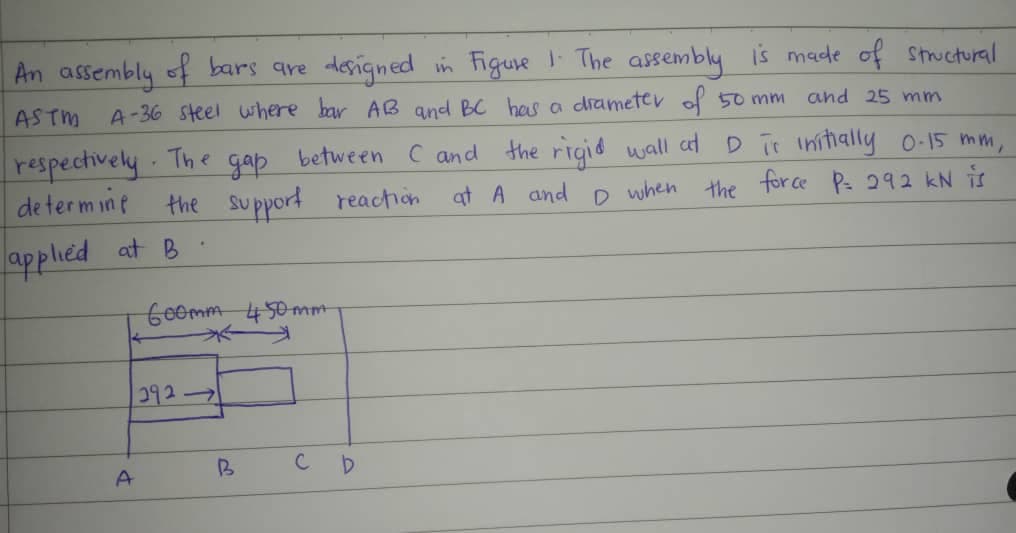 An assembly of bars are designed in Figure 1. The assembly is made of structural
ASTM A-36 steel where bar AB and BC has a diameter of 50 mm and 25 mm
respectively. The gap between C and the rigid wall at D is initially 0.15 mm,
determine the support reaction at A and D when the force P= 292 kN is
applied at B.
600mm 450mm
292
A B C D